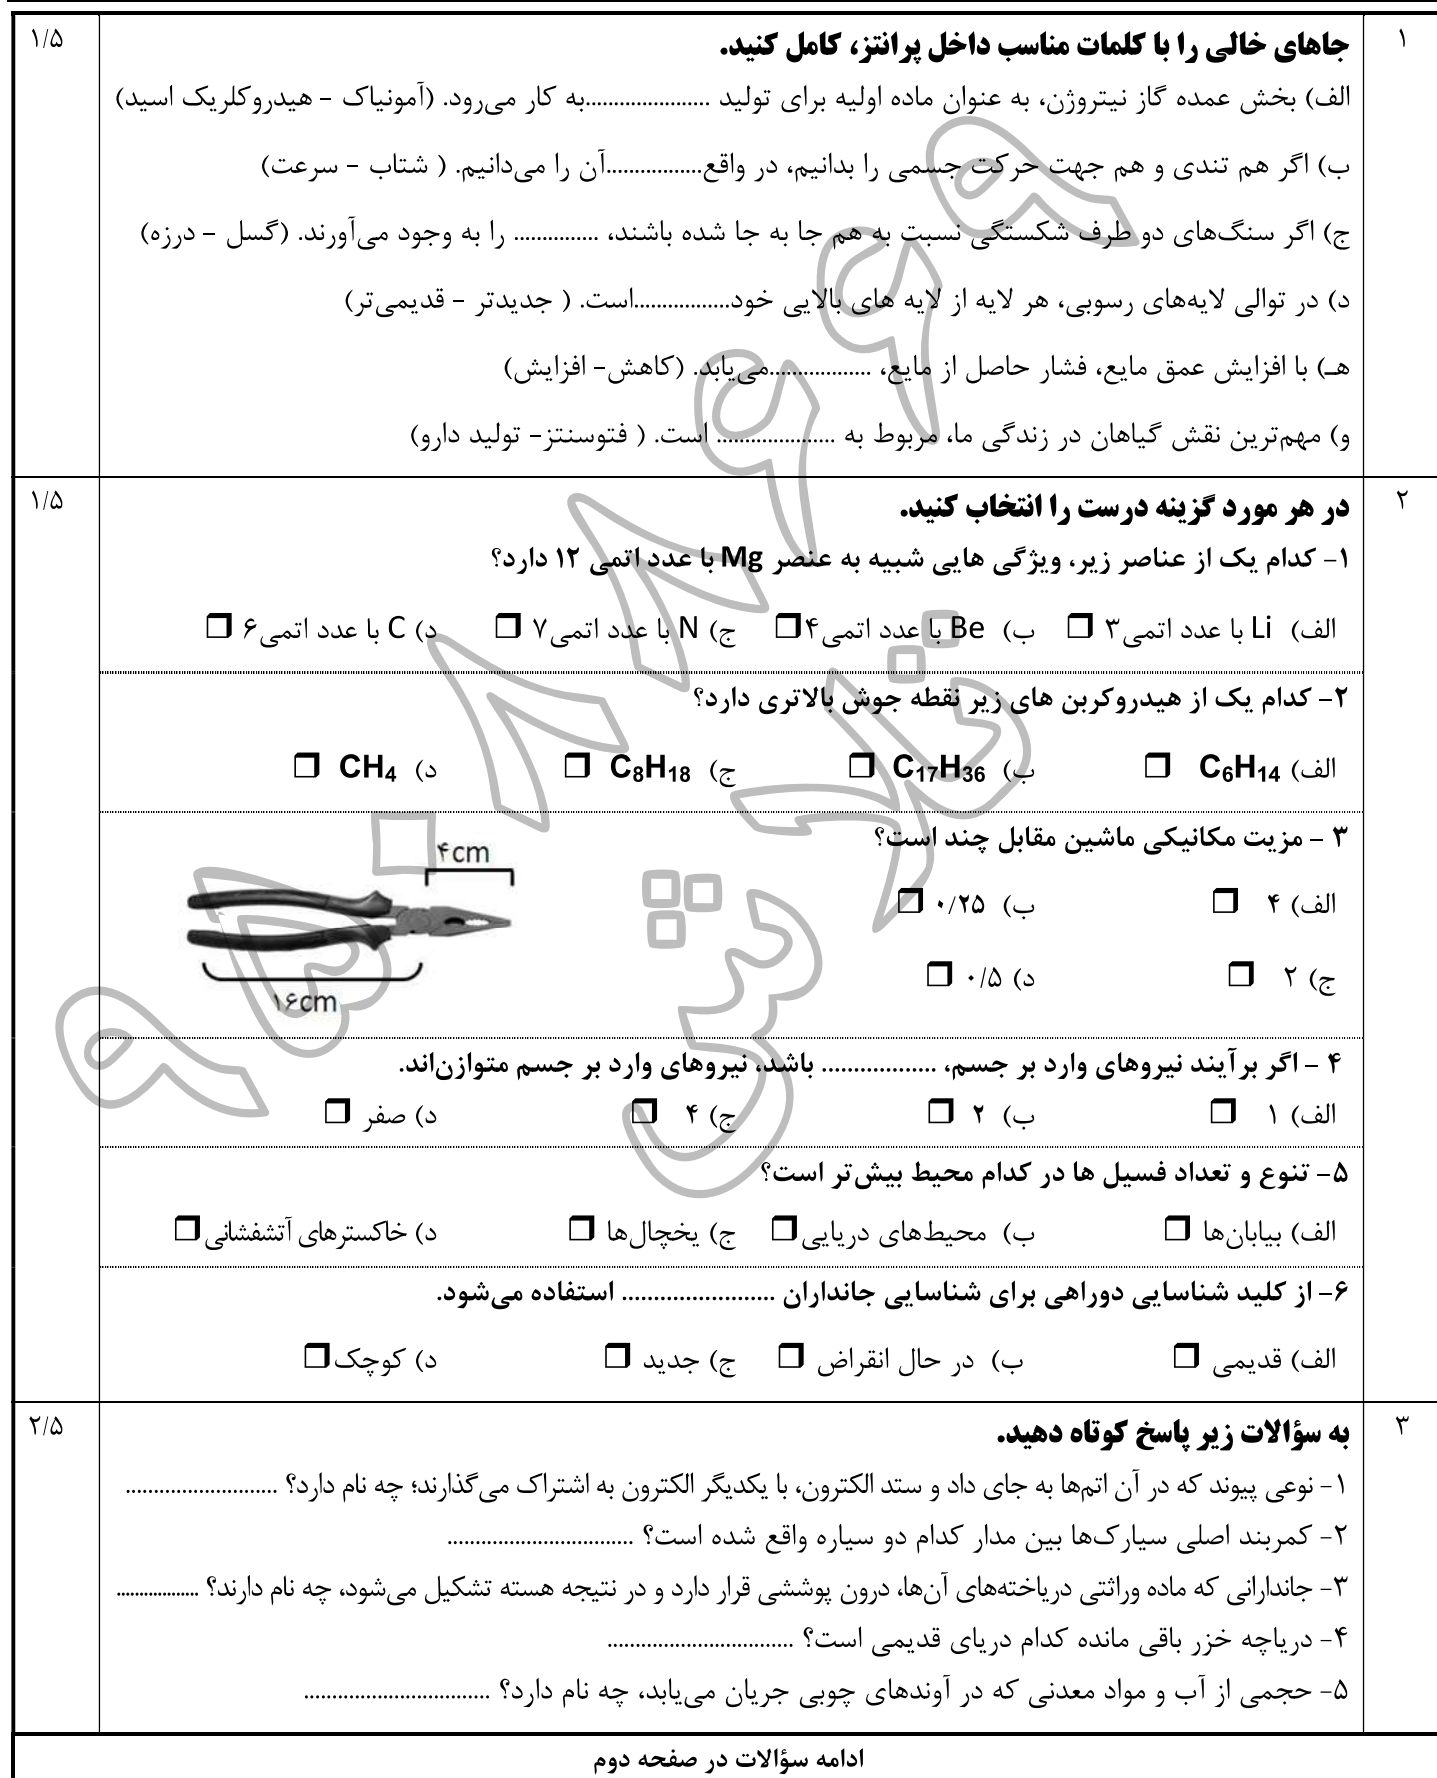 ۱ جاهای خالی را با کلمات مناسب داخل پرانتز، کامل کنید. ۱/۵
الف) بخش عمده گاز نیتروژن، به عنوان ماده اولیه برای تولید .....................به کار می‌رود. (آمونیاک - هیدروکلریک اسید)
ب) اگر هم تندی و هم جهت حرکت جسمی را بدانیم، در واقع.................آن را می‌دانیم. ( شتاب - سرعت)
ج) اگر سنگ‌های دو طرف شکستگی نسبت به هم جا به جا شده باشند، ............... را به وجود می‌آورند. (گسل - درزه)
د) در توالی لایه‌های رسوبی، هر لایه از لایه های بالایی خود.................است. ( جدیدتر - قدیمی‌تر)
هـ) با افزایش عمق مایع، فشار حاصل از مایع، .................می‌یابد. (کاهش- افزایش)
و) مهم‌ترین نقش گیاهان در زندگی ما، مربوط به ..................... است. ( فتوسنتز- تولید دارو)
۲ در هر مورد گزینه درست را انتخاب کنید. ۱/۵
۱- کدام یک از عناصر زیر، ویژگی هایی شبیه به عنصر Mg با عدد اتمی ۱۲ دارد؟
الف) Li با عدد اتمی۳ ❒ ب) Be با عدد اتمی۴❒ ج) N با عدد اتمی۷ ❒ د) C با عدد اتمی۶ ❒
۲- کدام یک از هیدروکربن های زیر نقطه جوش بالاتری دارد؟
الف) C₆H₁₄ ❒ ب) C₁₇H₃₆ ❒ ج) C₈H₁₈ ❒ د) CH₄ ❒
۳ - مزیت مکانیکی ماشین مقابل چند است؟
۴cm
الف) ۴ ❒ ب) ۰/۲۵ ❒
ج) ۲ ❒ د) ۰/۵ ❒
۱۶cm
۴ - اگر برآیند نیروهای وارد بر جسم، .................. باشد، نیروهای وارد بر جسم متوازن‌اند.
الف) ۱ ❒ ب) ۲ ❒ ج) ۴ ❒ د) صفر ❒
۵- تنوع و تعداد فسیل ها در کدام محیط بیش‌تر است؟
الف) بیابان‌ها ❒ ب) محیط‌های دریایی❒ ج) یخچال‌ها ❒ د) خاکسترهای آتشفشانی❒
۶- از کلید شناسایی دوراهی برای شناسایی جانداران ........................ استفاده می‌شود.
الف) قدیمی ❒ ب) در حال انقراض ❒ ج) جدید ❒ د) کوچک❒
۳ به سؤالات زیر پاسخ کوتاه دهید. ۲/۵
۱- نوعی پیوند که در آن اتم‌ها به جای داد و ستد الکترون، با یکدیگر الکترون به اشتراک می‌گذارند؛ چه نام دارد؟ ...........................
۲- کمربند اصلی سیارک‌ها بین مدار کدام دو سیاره واقع شده است؟ .................................
۳- جاندارانی که ماده وراثتی دریاخته‌های آن‌ها، درون پوششی قرار دارد و در نتیجه هسته تشکیل می‌شود، چه نام دارند؟ .................
۴- دریاچه خزر باقی مانده کدام دریای قدیمی است؟ .................................
۵- حجمی از آب و مواد معدنی که در آوندهای چوبی جریان می‌یابد، چه نام دارد؟ .................................
ادامه سؤالات در صفحه دوم